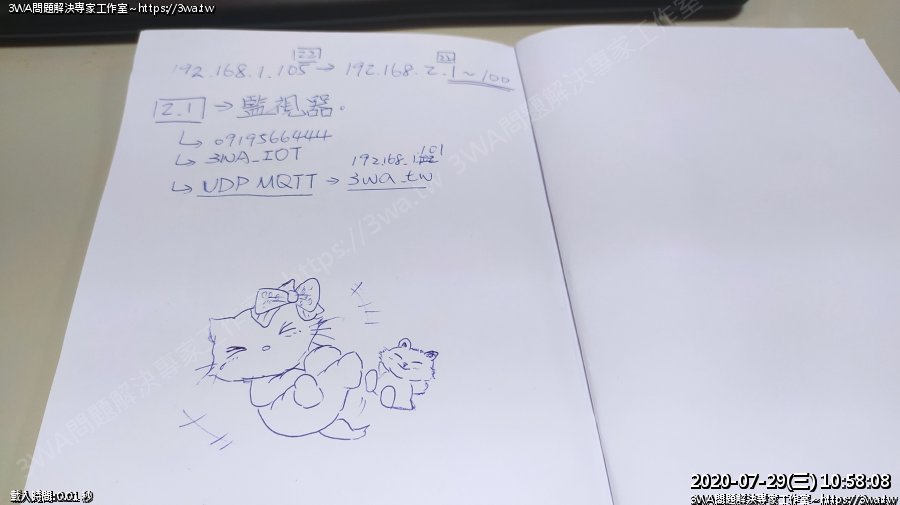 3WA問題解決專家工作室~https://3wa.tw
22 22
192.168.1.105 → 192.168.2.1~100
2.1 → 監視器。
↳ 0919566444
↳ 3WA_IOT
192.168.1.101
↳ UDP MQTT → 3wa.tw
3WA問題解決專家工作室~https://3wa.tw 3WA問題解決專家工作室
載入時間:0.01 秒
2020-07-29(三) 10:58:08
3WA問題解決專家工作室~https://3wa.tw